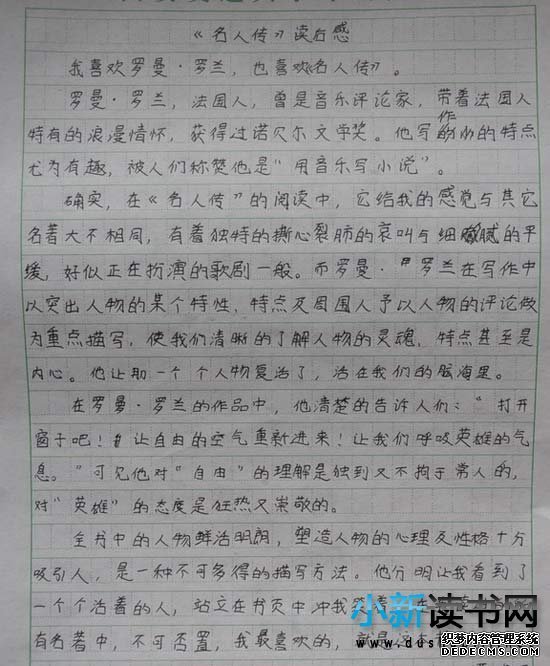 《名人传》读后感
我喜欢罗曼·罗兰，也喜欢《名人传》。
罗曼·罗兰，法国人，曾是音乐评论家，带着法国人
特有的浪漫情怀，获得过诺贝尔文学奖。他写作的特点
尤为有趣，被人们称赞他是"用音乐写小说"。
确实，在《名人传》的阅读中，它给我的感觉与其它
名著大不相同，有着独特的撕心裂肺的哀叫与细腻的平
缓，好似正在扮演的歌剧一般。而罗曼·罗兰在写作中
以突出人物的某个特性，特点及周围人予以人物的评论做
为重点描写，使我们清晰的了解人物的灵魂，特点甚至是
内心。他让那一个个人物复活了，活在我们的脑海里。
在罗曼·罗兰的作品中，他清楚的告诉人们："打开
窗子吧！让自由的空气重新进来！让我们呼吸英雄的气
息。"可见他对"自由"的理解是独到又不拘于常人的，
对"英雄"的态度是狂热又崇敬的。
全书中的人物鲜活明朗，塑造人物的心理及性格十分
吸引人，是一种不可多得的描写方法。他分明让我看到了
一个个活着的人，站立在书页中冲我
有名著中，不可否置，我最喜欢的，就是
小新读书网
www.dus
织梦内容管理系统
DEDECMS.COM